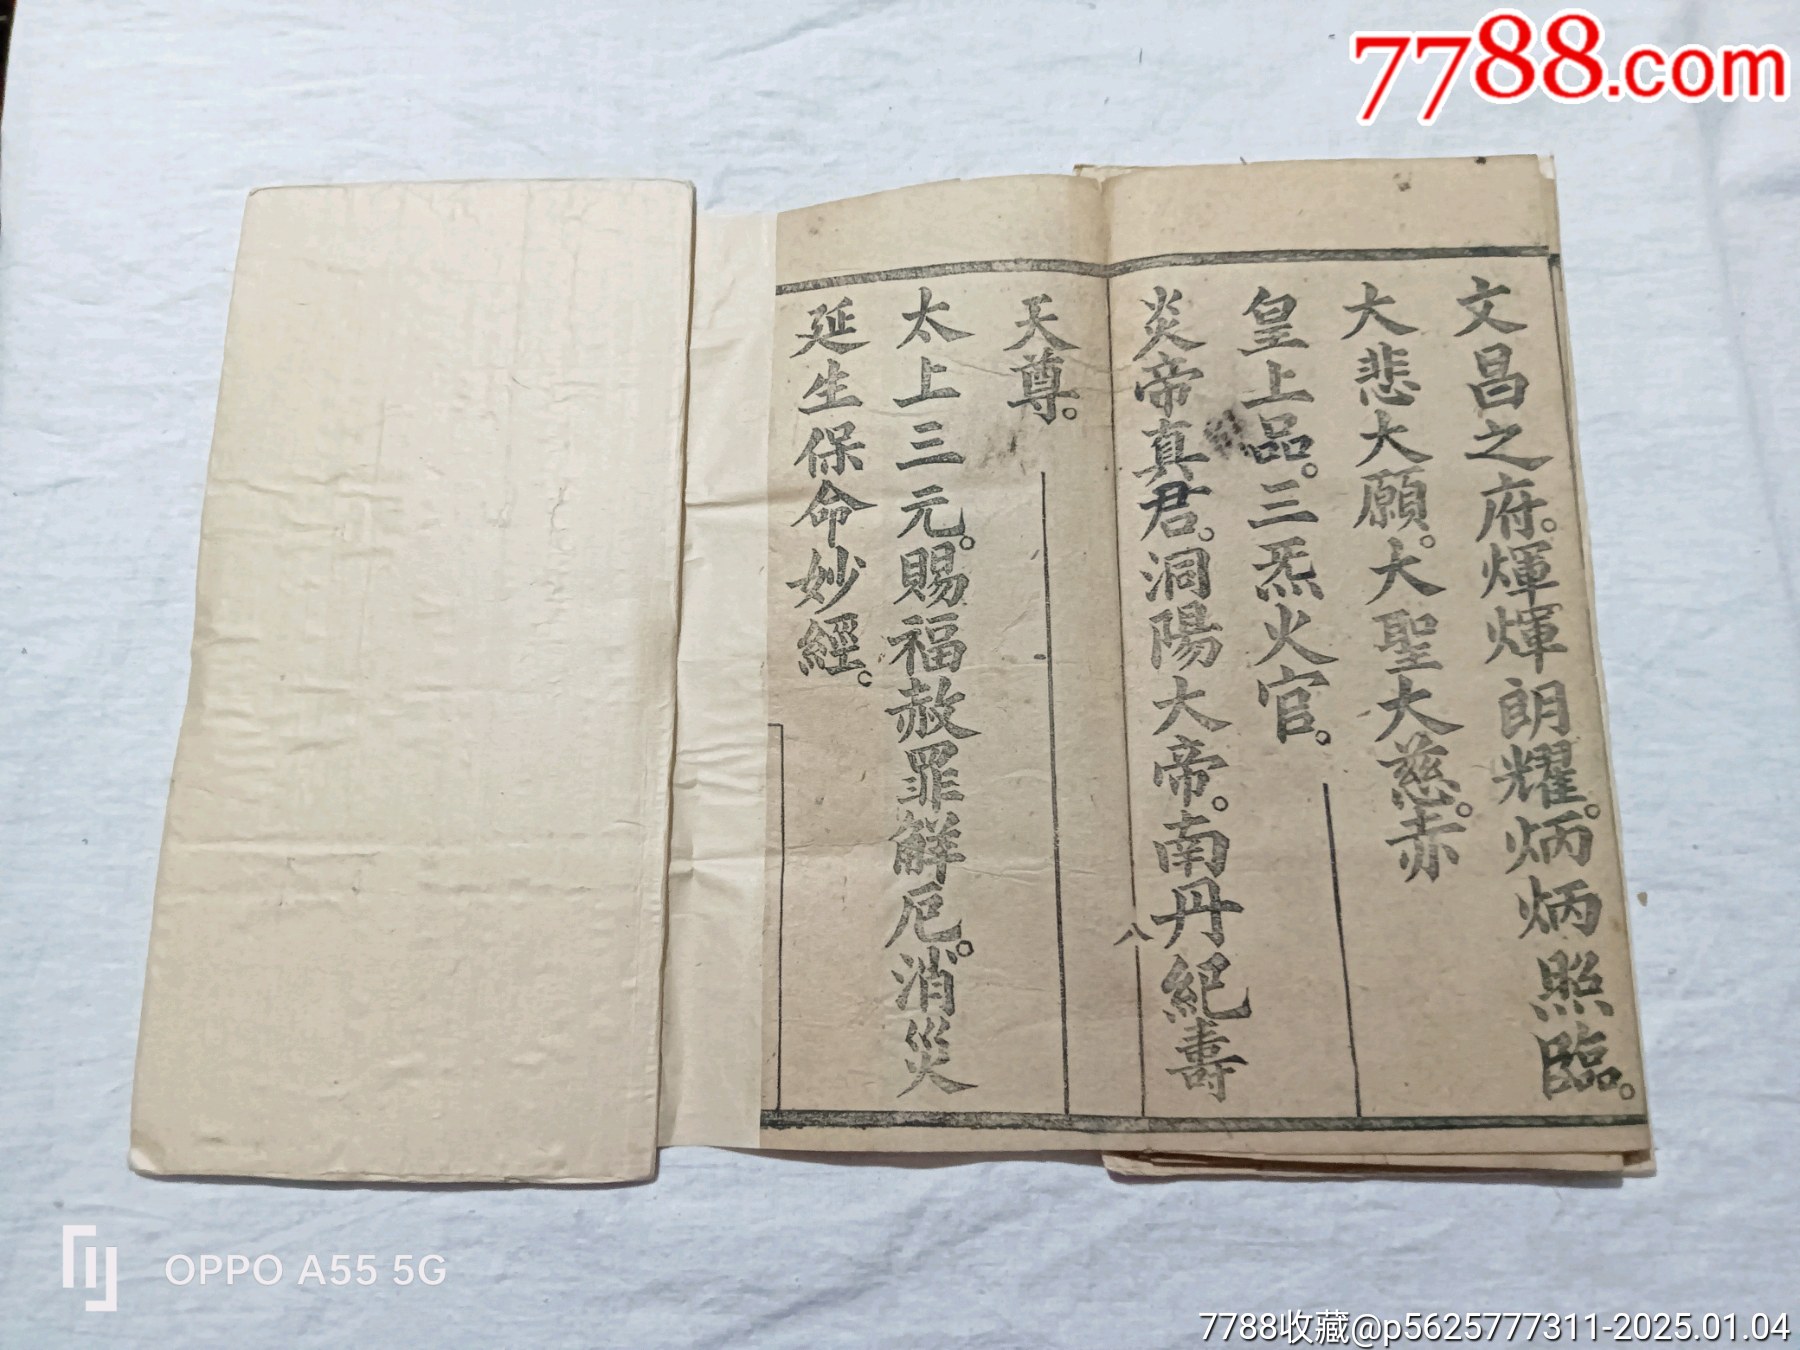 7788.com
文昌之府。煇煇朗耀。炳炳照臨。
大悲大願。大聖大慈。赤
皇上品。三炁火官。
炎帝真君。洞陽大帝。南丹紀壽
天尊。
太上三元。賜福赦罪解厄。消災
延生保命妙經。
八
OPPO A55 5G
7788收藏@p5625777311-2025.01.04